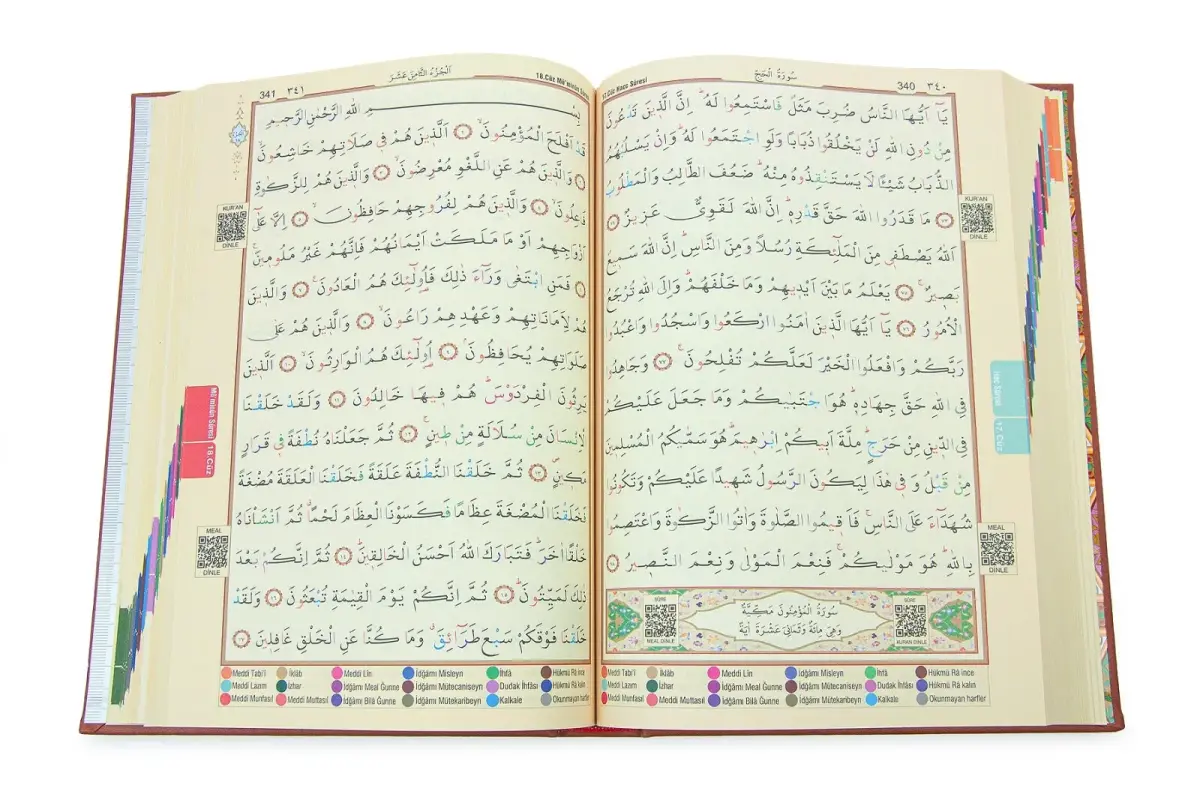 17.Cüz Hacc Sûresi سُورَةُ الْحَجِّ 340 ٣٤٠
يَٓا اَيُّهَا النَّاسُ ضُرِبَ مَثَلٌ فَاسْتَمِعُوا لَهُ اِنَّ الَّذ۪ينَ تَدْعُونَ
مِنْ دُونِ اللّٰهِ لَنْ يَخْلُقُوا ذُبَابًا وَلَوِ اجْتَمَعُوا لَهُ وَاِنْ يَسْلُبْهُمُ
الذُّبَابُ شَيْـًٔا لَا يَسْتَنْقِذُوهُ مِنْهُ ضَعُفَ الطَّالِبُ وَالْمَطْلُوبُ
٧٣ مَا قَدَرُوا اللّٰهَ حَقَّ قَدْرِه۪ اِنَّ اللّٰهَ لَقَوِيٌّ عَز۪يزٌ ٧٤
اَللّٰهُ يَصْطَف۪ي مِنَ الْمَلٰٓئِكَةِ رُسُلًا وَمِنَ النَّاسِ اِنَّ اللّٰهَ سَم۪يعٌ
بَص۪يرٌ ٧٥ يَعْلَمُ مَا بَيْنَ اَيْد۪يهِمْ وَمَا خَلْفَهُمْ وَاِلَى اللّٰهِ تُرْجَعُ
الْاُمُورُ ٧٦ يَٓا اَيُّهَا الَّذ۪ينَ اٰمَنُوا ارْكَعُوا وَاسْجُدُوا وَاعْبُدُوا
رَبَّكُمْ وَافْعَلُوا الْخَيْرَ لَعَلَّكُمْ تُفْلِحُونَ ٧٧ وَجَاهِدُوا
فِي اللّٰهِ حَقَّ جِهَادِه۪ هُوَ اجْتَبٰيكُمْ وَمَا جَعَلَ عَلَيْكُمْ
فِي الدّ۪ينِ مِنْ حَرَجٍ مِلَّةَ اَب۪يكُمْ اِبْرٰه۪يمَ هُوَ سَمّٰيكُمُ الْمُسْلِم۪ينَ
مِنْ قَبْلُ وَف۪ي هٰذَا لِيَكُونَ الرَّسُولُ شَه۪يدًا عَلَيْكُمْ وَتَكُونُوا
شُهَدَٓاءَ عَلَى النَّاسِ فَاَق۪يمُوا الصَّلٰوةَ وَاٰتُوا الزَّكٰوةَ وَاعْتَصِمُوا
بِاللّٰهِ هُوَ مَوْلٰيكُمْ فَنِعْمَ الْمَوْلٰى وَنِعْمَ النَّص۪يرُ ٧٨
سُورَةُ الْمُؤْمِنُونَ مَكِّيَّةٌ
وَهِيَ مِائَةٌ وَثَمَانِيَ عَشْرَةَ اٰيَةً
SÛRE
MEAL DİNLE
SÛRE
KUR'AN DİNLE
KUR'AN
DİNLE
Hac Sûresi 17. Cüz
MEAL
DİNLE
Meddi Tabi'î İklâb Meddi Lîn İdğâmı Misleyn İhfâ Hükmü Râ ince
Meddi Lazım İzhar İdğâmı Meal Ğunne İdğâmı Mütecaniseyn Dudak İhfâsı Hükmü Râ kalın
Meddi Munfasıl Meddi Muttasıl İdğâmı Bilâ Ğunne İdğâmı Mütekaribeyn Kalkale Okunmayan harfler
341 ٣٤١ اَلْجُزْءُ الثَّامِنَ عَشَرَ 18.Cüz Mü'minûn Sûresi
بِسْمِ اللّٰهِ الرَّحْمٰنِ الرَّح۪يمِ
قَدْ اَفْلَحَ الْمُؤْمِنُونَ ١ اَلَّذ۪ينَ هُمْ ف۪ي صَلَاتِهِمْ خَاشِعُونَ
٢ وَالَّذ۪ينَ هُمْ عَنِ اللَّغْوِ مُعْرِضُونَ ٣ وَالَّذ۪ينَ هُمْ لِلزَّكٰوةِ
فَاعِلُونَ ٤ وَالَّذ۪ينَ هُمْ لِفُرُوجِهِمْ حَافِظُونَ ٥ اِلَّا عَلٰٓى
اَزْوَاجِهِمْ اَوْ مَا مَلَكَتْ اَيْمَانُهُمْ فَاِنَّهُمْ غَيْرُ مَلُوم۪ينَ
٦ فَمَنِ ابْتَغٰى وَرَٓاءَ ذٰلِكَ فَاُو۬لٰٓئِكَ هُمُ الْعَادُونَ ٧ وَالَّذ۪ينَ
هُمْ لِاَمَانَاتِهِمْ وَعَهْدِهِمْ رَاعُونَ ٨ وَالَّذ۪ينَ هُمْ عَلٰى
صَلَوَاتِهِمْ يُحَافِظُونَ ٩ اُو۬لٰٓئِكَ هُمُ الْوَارِثُونَ ١٠ اَلَّذ۪ينَ
يَرِثُونَ الْفِرْدَوْسَ هُمْ ف۪يهَا خَالِدُونَ ١١ وَلَقَدْ خَلَقْنَا
الْاِنْسَانَ مِنْ سُلَالَةٍ مِنْ ط۪ينٍ ١٢ ثُمَّ جَعَلْنَاهُ نُطْفَةً ف۪ي قَرَارٍ
مَك۪ينٍ ١٣ ثُمَّ خَلَقْنَا النُّطْفَةَ عَلَقَةً فَخَلَقْنَا الْعَلَقَةَ مُضْغَةً
فَخَلَقْنَا الْمُضْغَةَ عِظَامًا فَكَسَوْنَا الْعِظَامَ لَحْمًا ثُمَّ اَنْشَاْنَاهُ
خَلْقًا اٰخَرَ فَتَبَارَكَ اللّٰهُ اَحْسَنُ الْخَالِق۪ينَ ١٤ ثُمَّ اِنَّكُمْ بَعْدَ
ذٰلِكَ لَمَيِّتُونَ ١٥ ثُمَّ اِنَّكُمْ يَوْمَ الْقِيٰمَةِ تُبْعَثُونَ ١٦ وَلَقَدْ
خَلَقْنَا فَوْقَكُمْ سَبْعَ طَرَٓائِقَ وَمَا كُنَّا عَنِ الْخَلْقِ غَافِل۪ينَ ١٧
KUR'AN
DİNLE
Mü'minûn Sûresi 18. Cüz
MEAL
DİNLE
Meddi Tabi'î İklâb Meddi Lîn İdğâmı Misleyn İhfâ Hükmü Râ ince
Meddi Lazım İzhar İdğâmı Meal Ğunne İdğâmı Mütecaniseyn Dudak İhfâsı Hükmü Râ kalın
Meddi Munfasıl Meddi Muttasıl İdğâmı Bilâ Ğunne İdğâmı Mütekaribeyn Kalkale Okunmayan harfler